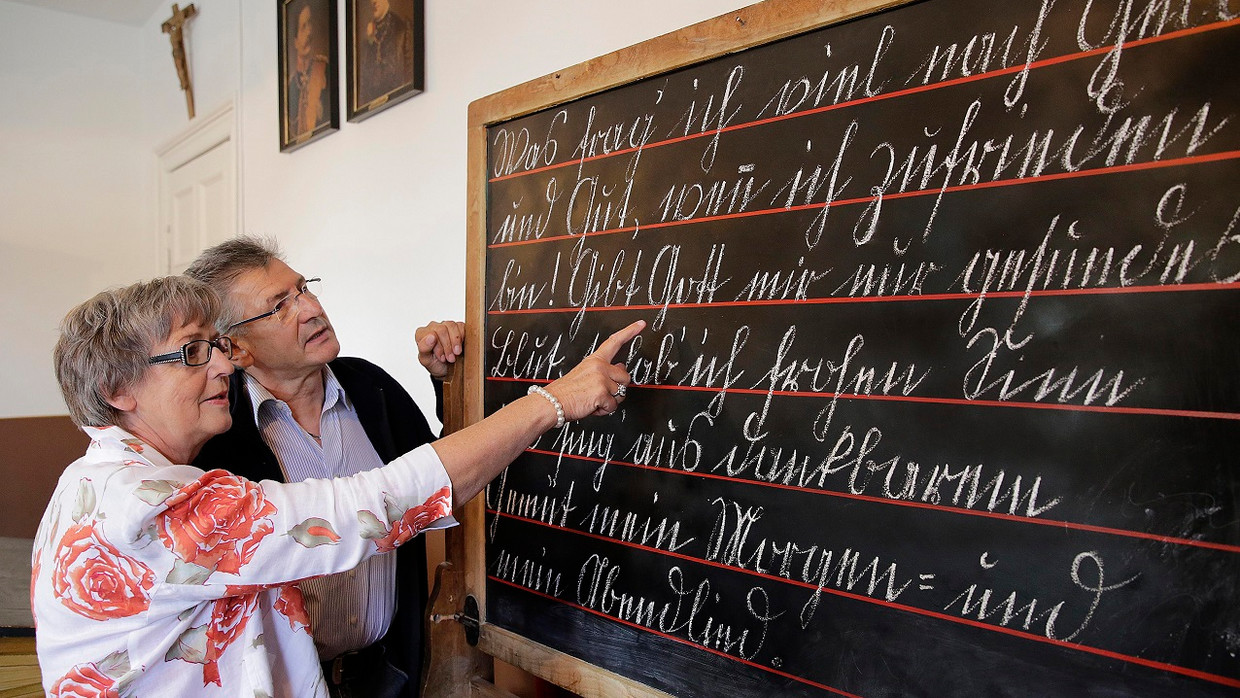 Was frag' ich viel nach
und Gut, wen̄ ich zufrieden
bin! Gibt Gott mir nur gesundes
Blut, hab' ich frohen Sinn
sing' aus dankbaren
Gemüt mein Morgen= und
mein Abendlied.